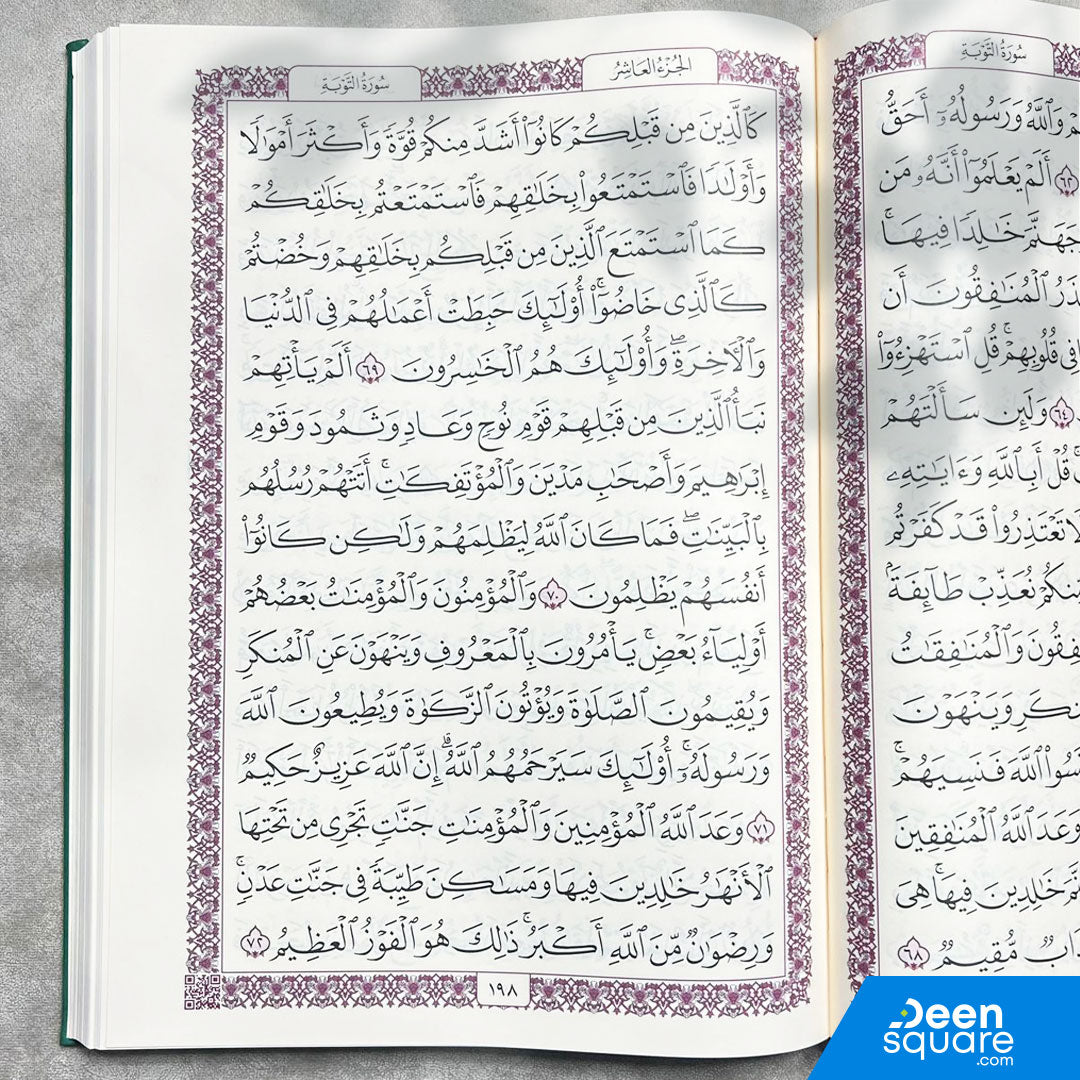 سُورَةُ التَّوْبَةِ
مْ وَٱللَّهُ وَرَسُولُهُۥٓ أَحَقُّ
٦٢ أَلَمْ يَعْلَمُوٓا۟ أَنَّهُۥ مَن
جَهَنَّمَ خَٰلِدًا فِيهَا ۚ
ذَرُ ٱلْمُنَٰفِقُونَ أَن
فِى قُلُوبِهِمْ ۚ قُلِ ٱسْتَهْزِءُوٓا۟
٦٤ وَلَئِن سَأَلْتَهُمْ
قُلْ أَبِٱللَّهِ وَءَايَٰتِهِۦ
لَا تَعْتَذِرُوا۟ قَدْ كَفَرْتُم
مِنكُمْ نُعَذِّبْ طَآئِفَةًۢ
فِقُونَ وَٱلْمُنَٰفِقَٰتُ
نكَرِ وَيَنْهَوْنَ
سُوا۟ ٱللَّهَ فَنَسِيَهُمْ ۗ
وَعَدَ ٱللَّهُ ٱلْمُنَٰفِقِينَ
مَ خَٰلِدِينَ فِيهَا ۚ هِىَ
ذَابٌ مُّقِيمٌ ٦٨
الجُزْءُ العَاشِرُ
سُورَةُ التَّوْبَةِ
كَٱلَّذِينَ مِن قَبْلِكُمْ كَانُوٓا۟ أَشَدَّ مِنكُمْ قُوَّةً وَأَكْثَرَ أَمْوَٰلًا
وَأَوْلَٰدًا فَٱسْتَمْتَعُوا۟ بِخَلَٰقِهِمْ فَٱسْتَمْتَعْتُم بِخَلَٰقِكُمْ
كَمَا ٱسْتَمْتَعَ ٱلَّذِينَ مِن قَبْلِكُم بِخَلَٰقِهِمْ وَخُضْتُمْ
كَٱلَّذِى خَاضُوٓا۟ ۚ أُو۟لَٰٓئِكَ حَبِطَتْ أَعْمَٰلُهُمْ فِى ٱلدُّنْيَا
وَٱلْءَاخِرَةِ ۖ وَأُو۟لَٰٓئِكَ هُمُ ٱلْخَٰسِرُونَ ٦٩ أَلَمْ يَأْتِهِمْ
نَبَأُ ٱلَّذِينَ مِن قَبْلِهِمْ قَوْمِ نُوحٍ وَعَادٍ وَثَمُودَ وَقَوْمِ
إِبْرَٰهِيمَ وَأَصْحَٰبِ مَدْيَنَ وَٱلْمُؤْتَفِكَٰتِ ۚ أَتَتْهُمْ رُسُلُهُم
بِٱلْبَيِّنَٰتِ ۖ فَمَا كَانَ ٱللَّهُ لِيَظْلِمَهُمْ وَلَٰكِن كَانُوٓا۟
أَنفُسَهُمْ يَظْلِمُونَ ٧٠ وَٱلْمُؤْمِنُونَ وَٱلْمُؤْمِنَٰتُ بَعْضُهُمْ
أَوْلِيَآءُ بَعْضٍ ۚ يَأْمُرُونَ بِٱلْمَعْرُوفِ وَيَنْهَوْنَ عَنِ ٱلْمُنكَرِ
وَيُقِيمُونَ ٱلصَّلَوٰةَ وَيُؤْتُونَ ٱلزَّكَوٰةَ وَيُطِيعُونَ ٱللَّهَ
وَرَسُولَهُۥٓ ۚ أُو۟لَٰٓئِكَ سَيَرْحَمُهُمُ ٱللَّهُ ۗ إِنَّ ٱللَّهَ عَزِيزٌ حَكِيمٌ
٧١ وَعَدَ ٱللَّهُ ٱلْمُؤْمِنِينَ وَٱلْمُؤْمِنَٰتِ جَنَّٰتٍ تَجْرِى مِن تَحْتِهَا
ٱلْأَنْهَٰرُ خَٰلِدِينَ فِيهَا وَمَسَٰكِنَ طَيِّبَةً فِى جَنَّٰتِ عَدْنٍ ۚ
وَرِضْوَٰنٌ مِّنَ ٱللَّهِ أَكْبَرُ ۚ ذَٰلِكَ هُوَ ٱلْفَوْزُ ٱلْعَظِيمُ ٧٢
١٩٨
Deen
square
.com